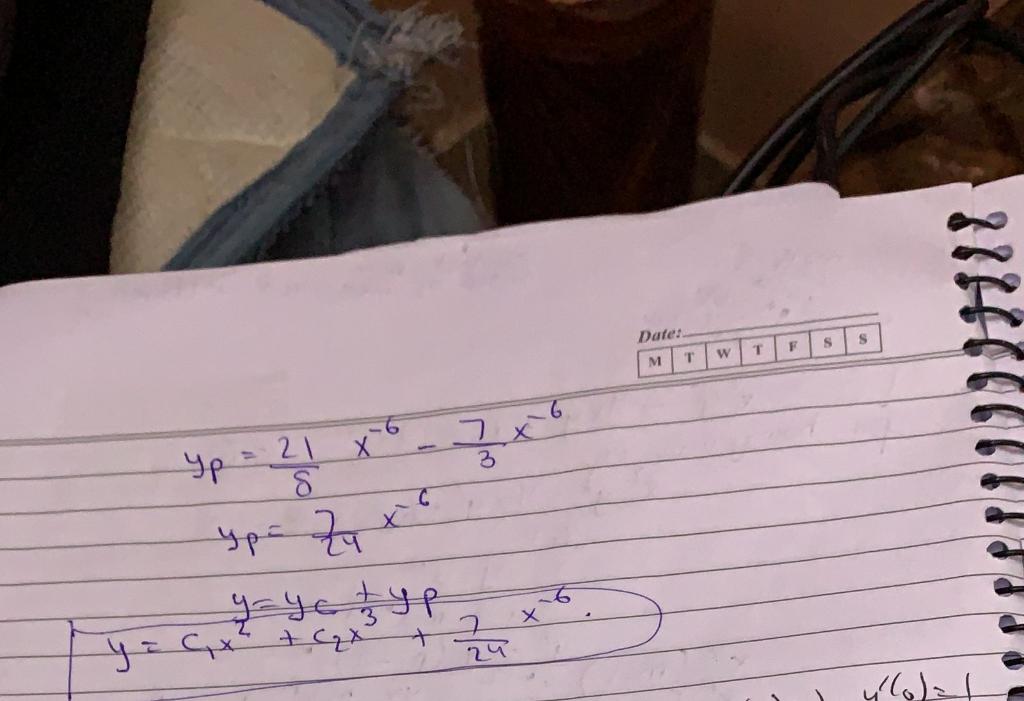 Date:
M T W T F S S
yp = 21/8 x^-6 - 7/3 x^-6
yp = 7/24 x^-6
y = yc + yp
y = c₁x² + c₂x³ + 7/24 x^-6.
y'(0) = 1